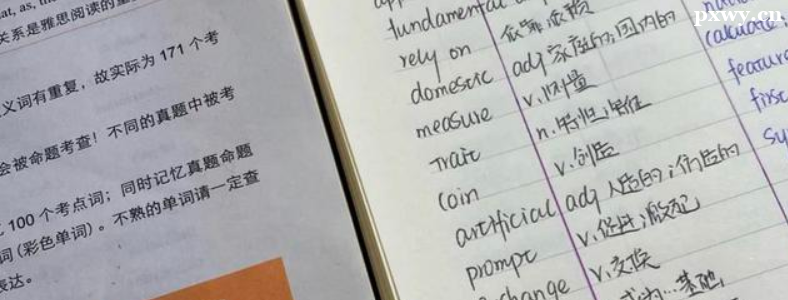 at, as, mo
关系是雅思阅读的重
义词有重复，故实际为 171 个考
会被命题考查！不同的真题中被考
100 个考点词；同时记忆真题命题
词（彩色单词）。不熟的单词请一定查
表达。
fundamental
rely on 依靠；依赖
domestic adj 家庭的；国内的
measure v. 测量
trait n. 特性；属性
coin v. 创造
artificial adj 人造的；伪造的
prompt v. 促进；激起
change v. 交换
基础
calculate
feature
first
sy
pxwy.cn